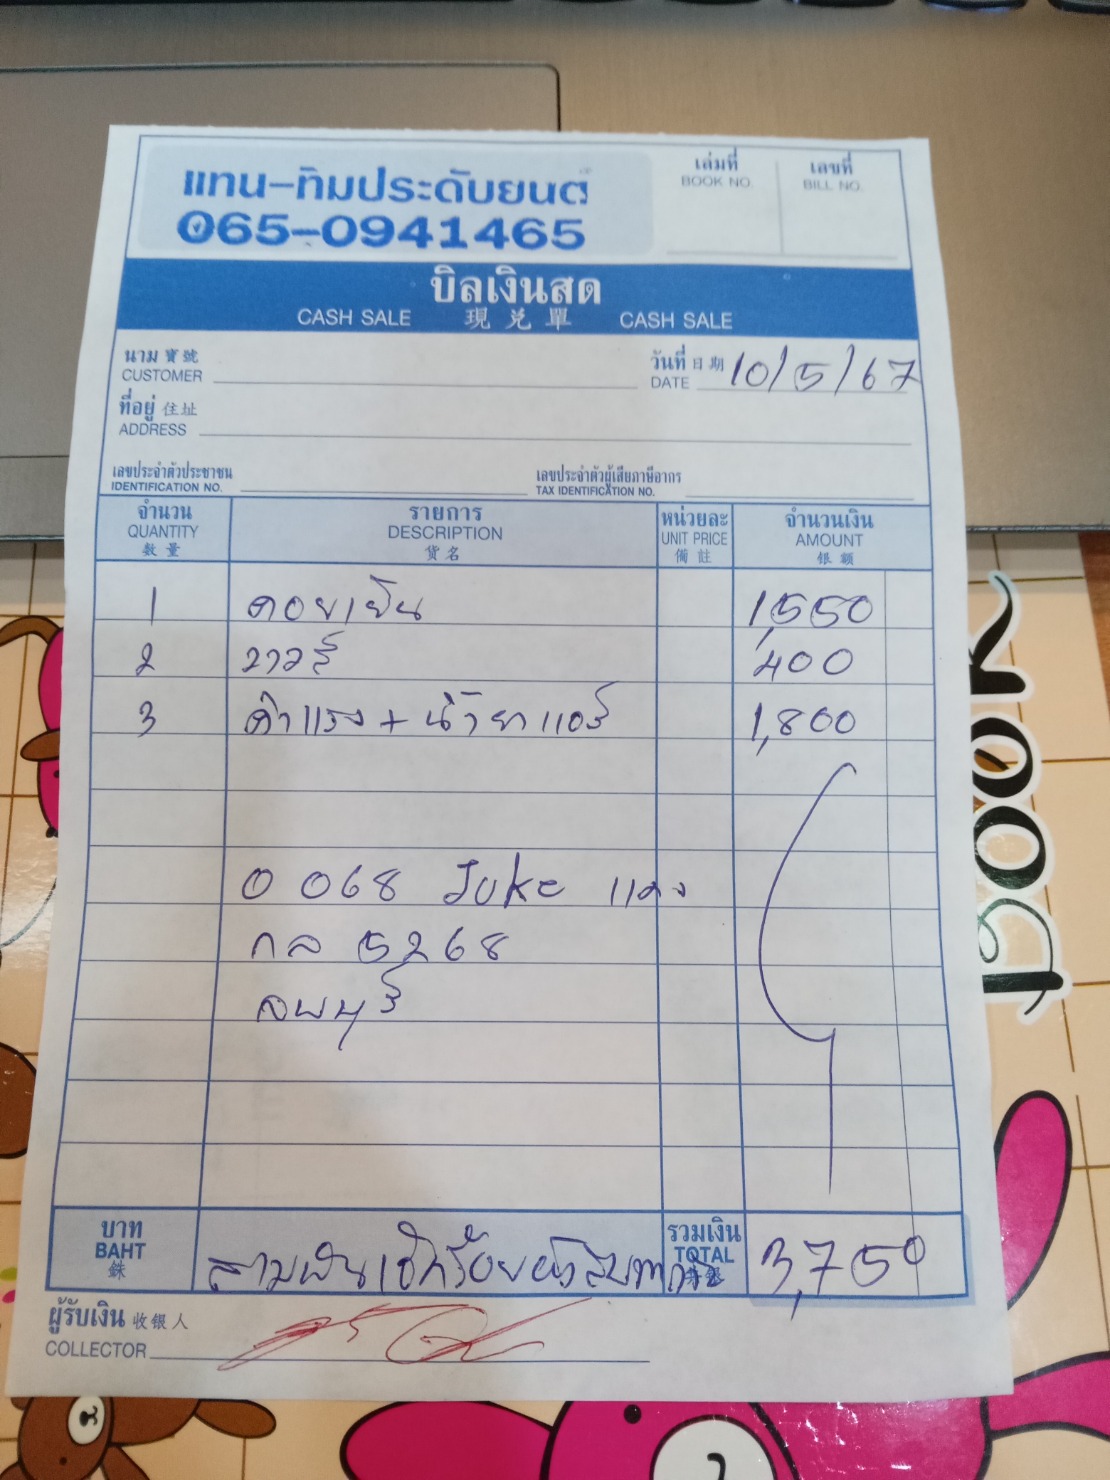 แทน-ทิมประดับยนต์
065-0941465
เล่มที่
BOOK NO.
เลขที่
BILL NO.
บิลเงินสด
CASH SALE 現兑單 CASH SALE
นาม寶號
CUSTOMER
วันที่日期
DATE
10/5/67
ที่อยู่住址
ADDRESS
เลขประจำตัวประชาชน
IDENTIFICATION NO.
เลขประจำตัวผู้เสียภาษีอากร
TAX IDENTIFICATION NO.
จำนวน
QUANTITY
数量
รายการ
DESCRIPTION
货名
หน่วยละ
UNIT PRICE
備註
จำนวนเงิน
AMOUNT
银额
1 คอยเย็น 1,550
2 วาวล์ 400
3 ค่าแรง + น้ำยาแอร์ 1,800
0 068 Juke แดง
กล 5268
ลพบุรี
บาท
BAHT
銖
สามพันเจ็ดร้อยห้าสิบบาท
รวมเงิน
TOTAL
3,750
ผู้รับเงิน收银人
COLLECTOR